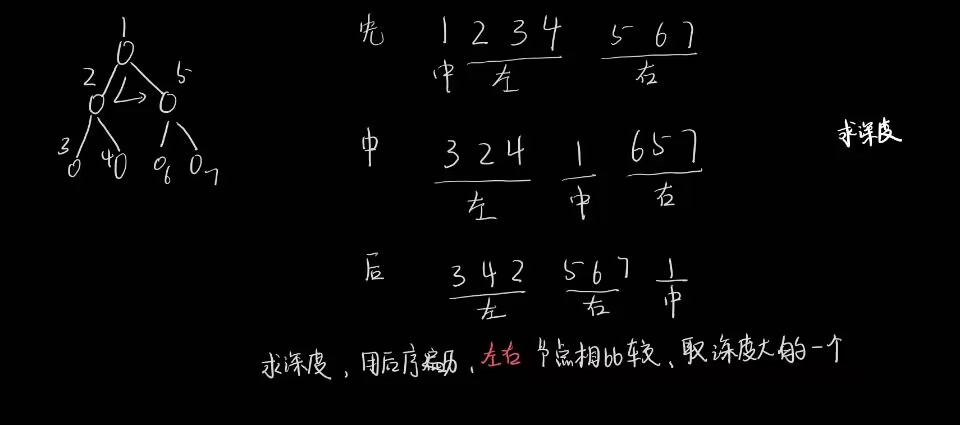 1
2 5
3 4 6 7
先 1 2 3 4 5 6 7
中 左 右
中 3 2 4 1 6 5 7
左 中 右
求深度
后 3 4 2 5 6 7 1
左 右 中
求深度，用后序遍历，左右节点相比较、取深度大的一个